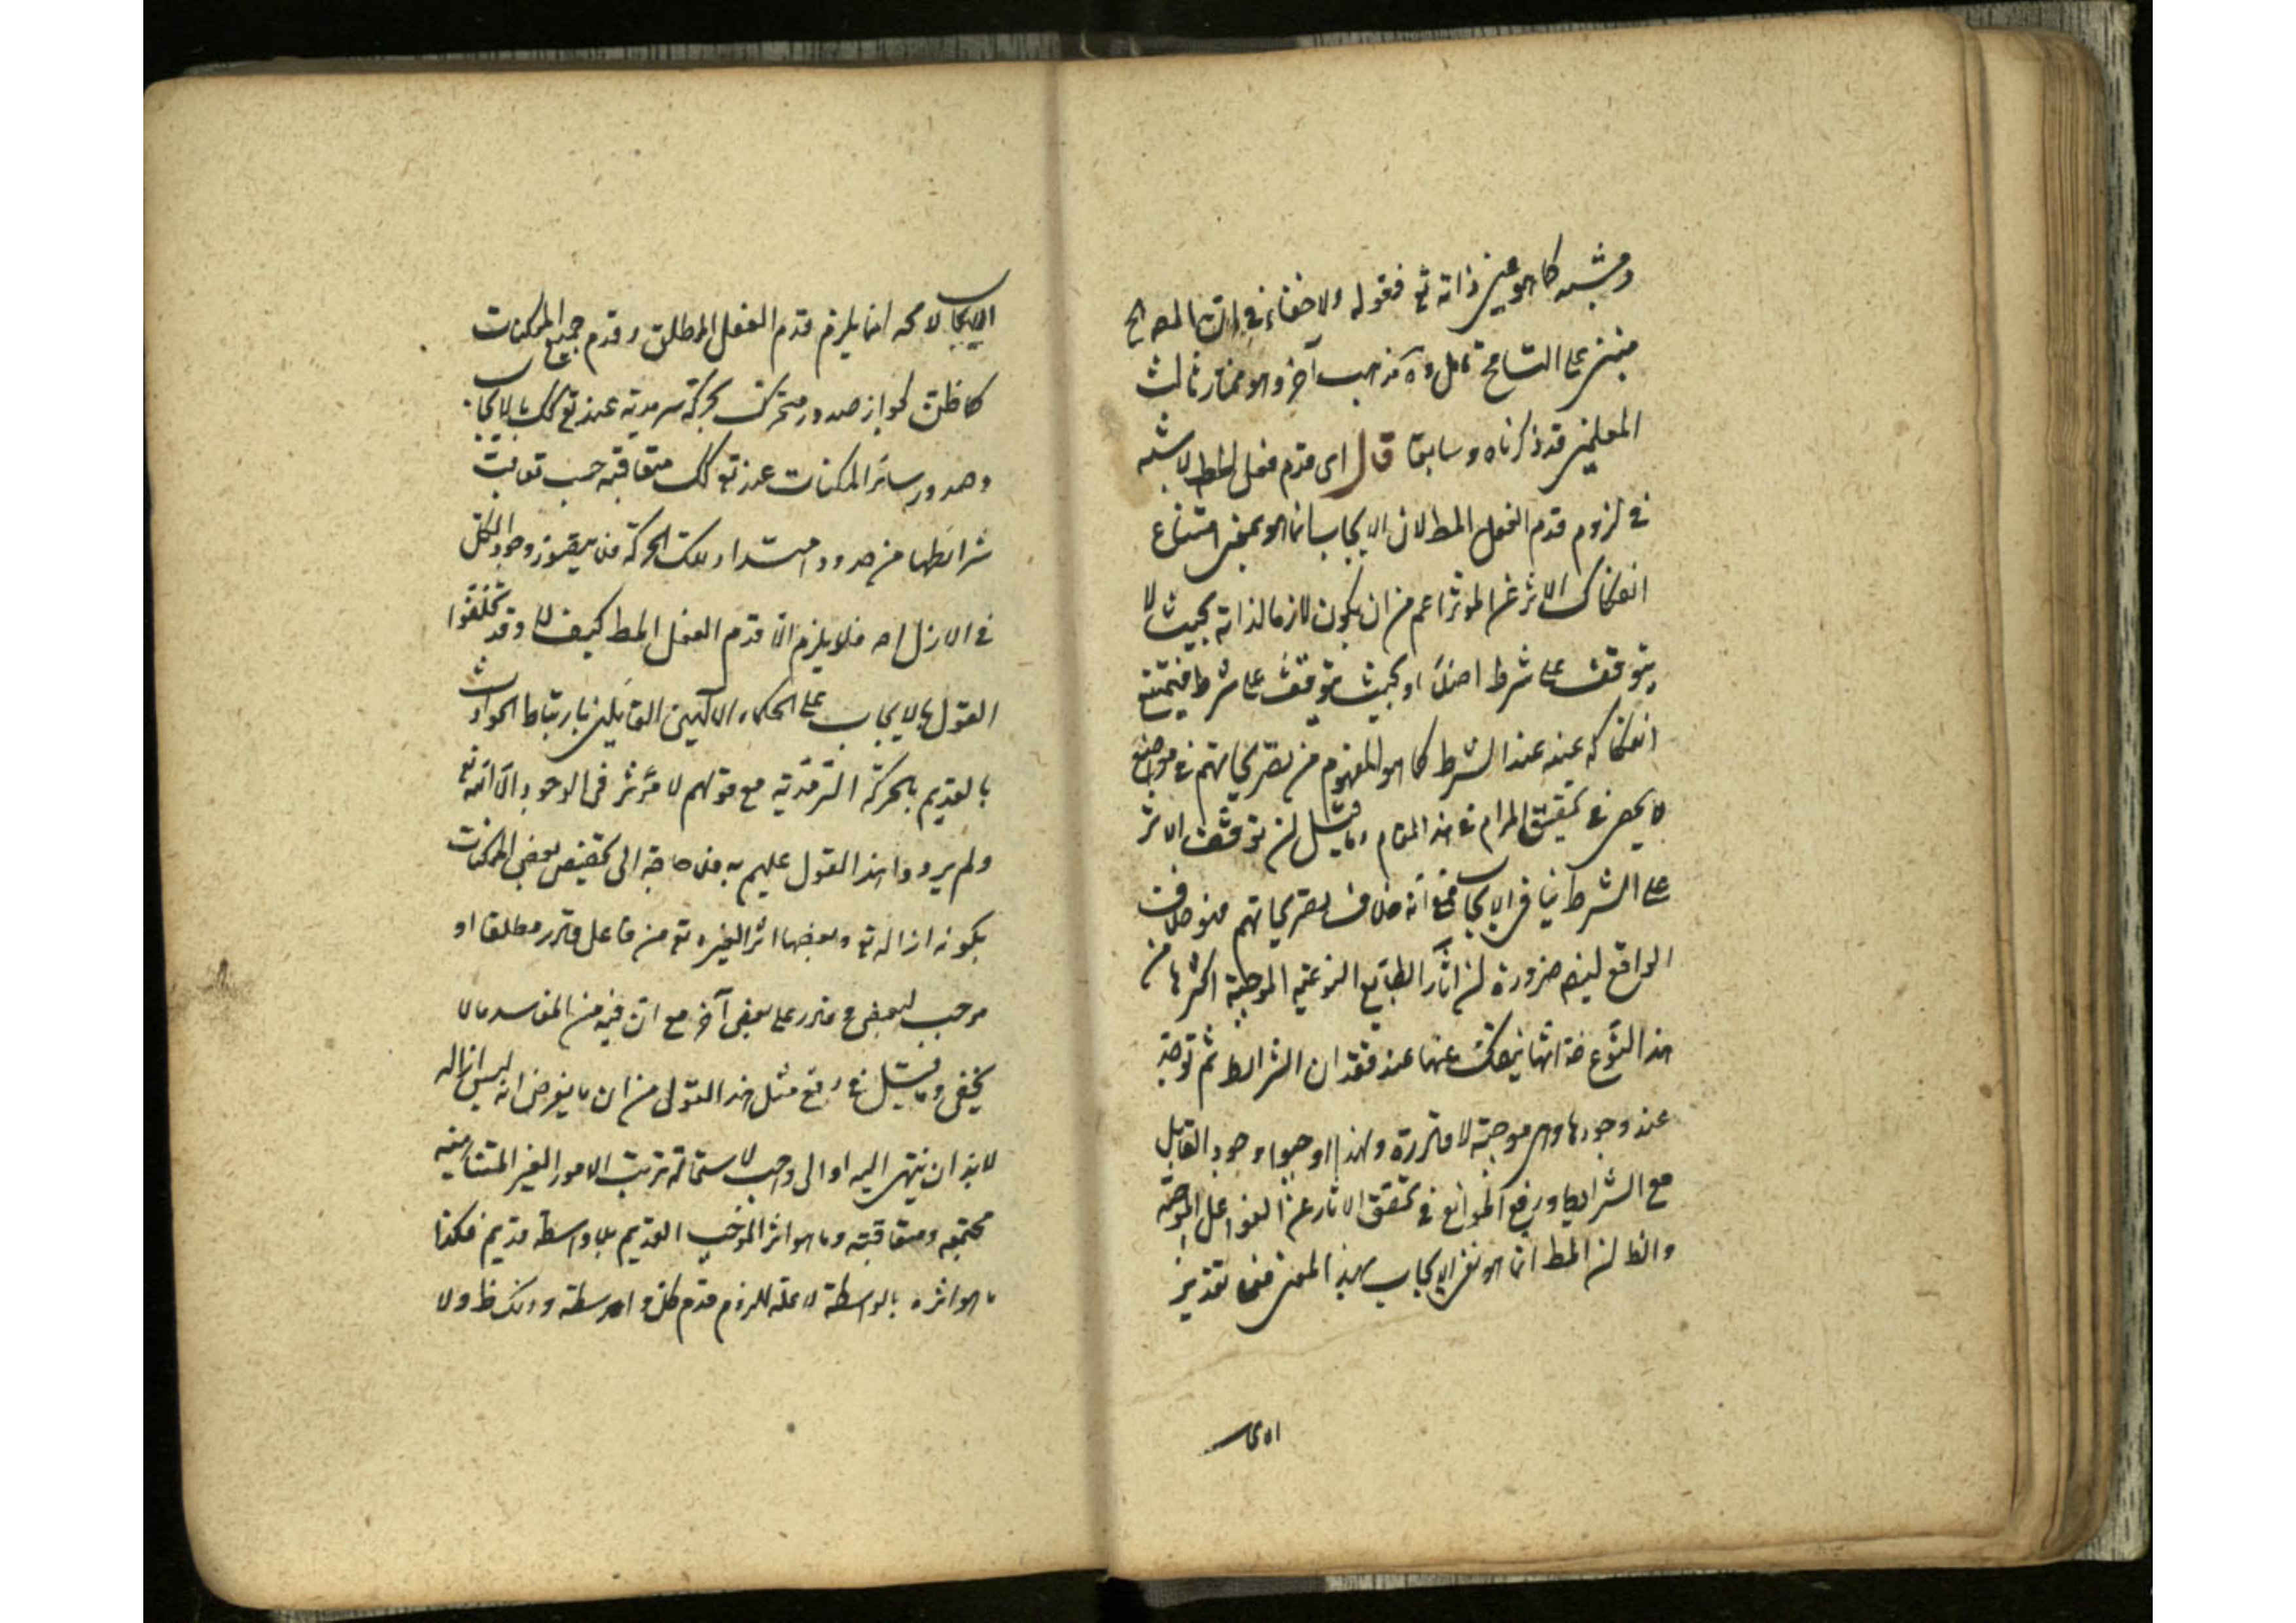 ومشيته كما هو عين ذاته تع فقوله ولا خفاء في ان هذا المصالح
مبني على التسامح تأمل مذهب آخر وهو مختار ثالث
المعلمين قد ذكرناه سابقا قال اى قدم فعل المط لا شبهة
في لزوم قدم الفعل المط لان الايجاب انما هو بمعنى امتناع
انفكاك الاثر عن الموثر اعم من ان يكون لازما لذاته بحيث لا
يتوقف على شرط اصلا او بحيث يتوقف على شرط فيمتنع
انفكاكه عنه عند الشرط كما هو المفهوم من تصريحاتهم في مواضع
لا يحصى في تحقيق المرام في هذا المقام وما قيل ان توقف الاثر
على الشرط ينافى الايجاب فمع انه خلاف تصريحاتهم فهو خلاف
الواقع ايضا ضرورة ان اثار الطبايع النوعية الموجبة اكثرها من
هذا النوع فانها ينفك عنها عند فقدان الشرائط ثم توجد
عند وجودها وهى موجبة لا قادرة ولهذا اوجبوا وجود القابل
مع الشرايط ورفع الموانع في تحقق الاثار عن الفواعل الموجبة
والظ ان المط انما هو نفى الايجاب بهذا المعنى فعلى تقدير
الايجاب
الايجاب لا محه انما يلزم قدم الفعل المطلق وقدم جميع الممكنات
كما ظن لجواز صدور متحرك بحركة سرمدية عنه تع كك بالايجاب
وصدور سائر الممكنات عنه تع كك متعاقبة حسب تعاقب
شرائطها من حدود امتداد تلك الحركة فلا يتصور وجود الكل
في الازل اصلا فلا يلزم الا قدم الفعل المط كيف لا وقد
القول بالايجاب على الحكماء الالهيين القائلين بارتباط الحوادث
بالقديم بالحركة السرمدية مع قولهم لا مؤثر في الوجود الا الله تع
ولم يردوا هذا القول عليهم به فلا حاجة الى تخصيص بعض الممكنات
بكونه اثرا له تع وبعضها اثرا لغيره تع من فاعل قادر مطلقا او
موجب لبعض وقادر على بعض آخر مع ان فيه من المفاسد ما لا
يخفى وما قيل في دفع مثل هذا القول من ان ما يفرض انه ليس اثرا له
لابد ان ينتهى اليه او الى واجب لاستحالة ترتب الامور الغير المتناهية
مجتمعة ومتعاقبة وما هو اثر الموجب القديم بلا واسطة قديم فكذا
ما هو اثره بالواسطة لا محه للزوم قدم كل واسطة وذلك ظ ولا